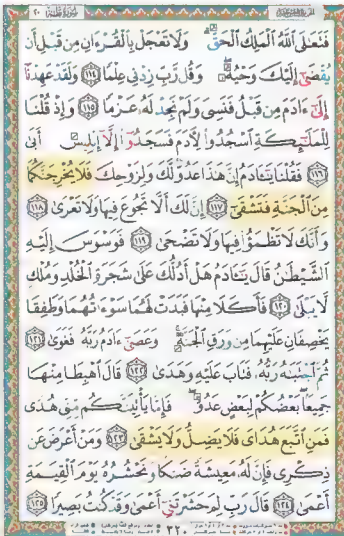 سورة طه ٢٠
فَتَعَالَى ٱللَّهُ ٱلْمَلِكُ ٱلْحَقُّ ۗ وَلَا تَعْجَلْ بِٱلْقُرْءَانِ مِن قَبْلِ أَن
يُقْضَىٰٓ إِلَيْكَ وَحْيُهُۥ ۖ وَقُل رَّبِّ زِدْنِى عِلْمًا ۝١١٤ وَلَقَدْ عَهِدْنَآ
إِلَىٰٓ ءَادَمَ مِن قَبْلُ فَنَسِىَ وَلَمْ نَجِدْ لَهُۥ عَزْمًا ۝١١٥ وَإِذْ قُلْنَا
لِلْمَلَٰٓئِكَةِ ٱسْجُدُوا۟ لِءَادَمَ فَسَجَدُوٓا۟ إِلَّآ إِبْلِيسَ أَبَىٰ
۝١١٦ فَقُلْنَا يَٰٓـَٔادَمُ إِنَّ هَٰذَا عَدُوٌّ لَّكَ وَلِزَوْجِكَ فَلَا يُخْرِجَنَّكُمَا
مِنَ ٱلْجَنَّةِ فَتَشْقَىٰٓ ۝١١٧ إِنَّ لَكَ أَلَّا تَجُوعَ فِيهَا وَلَا تَعْرَىٰ ۝١١٨
وَأَنَّكَ لَا تَظْمَؤُا۟ فِيهَا وَلَا تَضْحَىٰ ۝١١٩ فَوَسْوَسَ إِلَيْهِ
ٱلشَّيْطَٰنُ قَالَ يَٰٓـَٔادَمُ هَلْ أَدُلُّكَ عَلَىٰ شَجَرَةِ ٱلْخُلْدِ وَمُلْكٍ
لَّا يَبْلَىٰ ۝١٢٠ فَأَكَلَا مِنْهَا فَبَدَتْ لَهُمَا سَوْءَٰتُهُمَا وَطَفِقَا
يَخْصِفَانِ عَلَيْهِمَا مِن وَرَقِ ٱلْجَنَّةِ ۚ وَعَصَىٰٓ ءَادَمُ رَبَّهُۥ فَغَوَىٰ ۝١٢١
ثُمَّ ٱجْتَبَٰهُ رَبُّهُۥ فَتَابَ عَلَيْهِ وَهَدَىٰ ۝١٢٢ قَالَ ٱهْبِطَا مِنْهَا
جَمِيعًۢا ۖ بَعْضُكُمْ لِبَعْضٍ عَدُوٌّ ۖ فَإِمَّا يَأْتِيَنَّكُم مِّنِّى هُدًى
فَمَنِ ٱتَّبَعَ هُدَاىَ فَلَا يَضِلُّ وَلَا يَشْقَىٰ ۝١٢٣ وَمَنْ أَعْرَضَ عَن
ذِكْرِى فَإِنَّ لَهُۥ مَعِيشَةً ضَنكًا وَنَحْشُرُهُۥ يَوْمَ ٱلْقِيَٰمَةِ
أَعْمَىٰ ۝١٢٤ قَالَ رَبِّ لِمَ حَشَرْتَنِىٓ أَعْمَىٰ وَقَدْ كُنتُ بَصِيرًا ۝١٢٥
٣٢٠